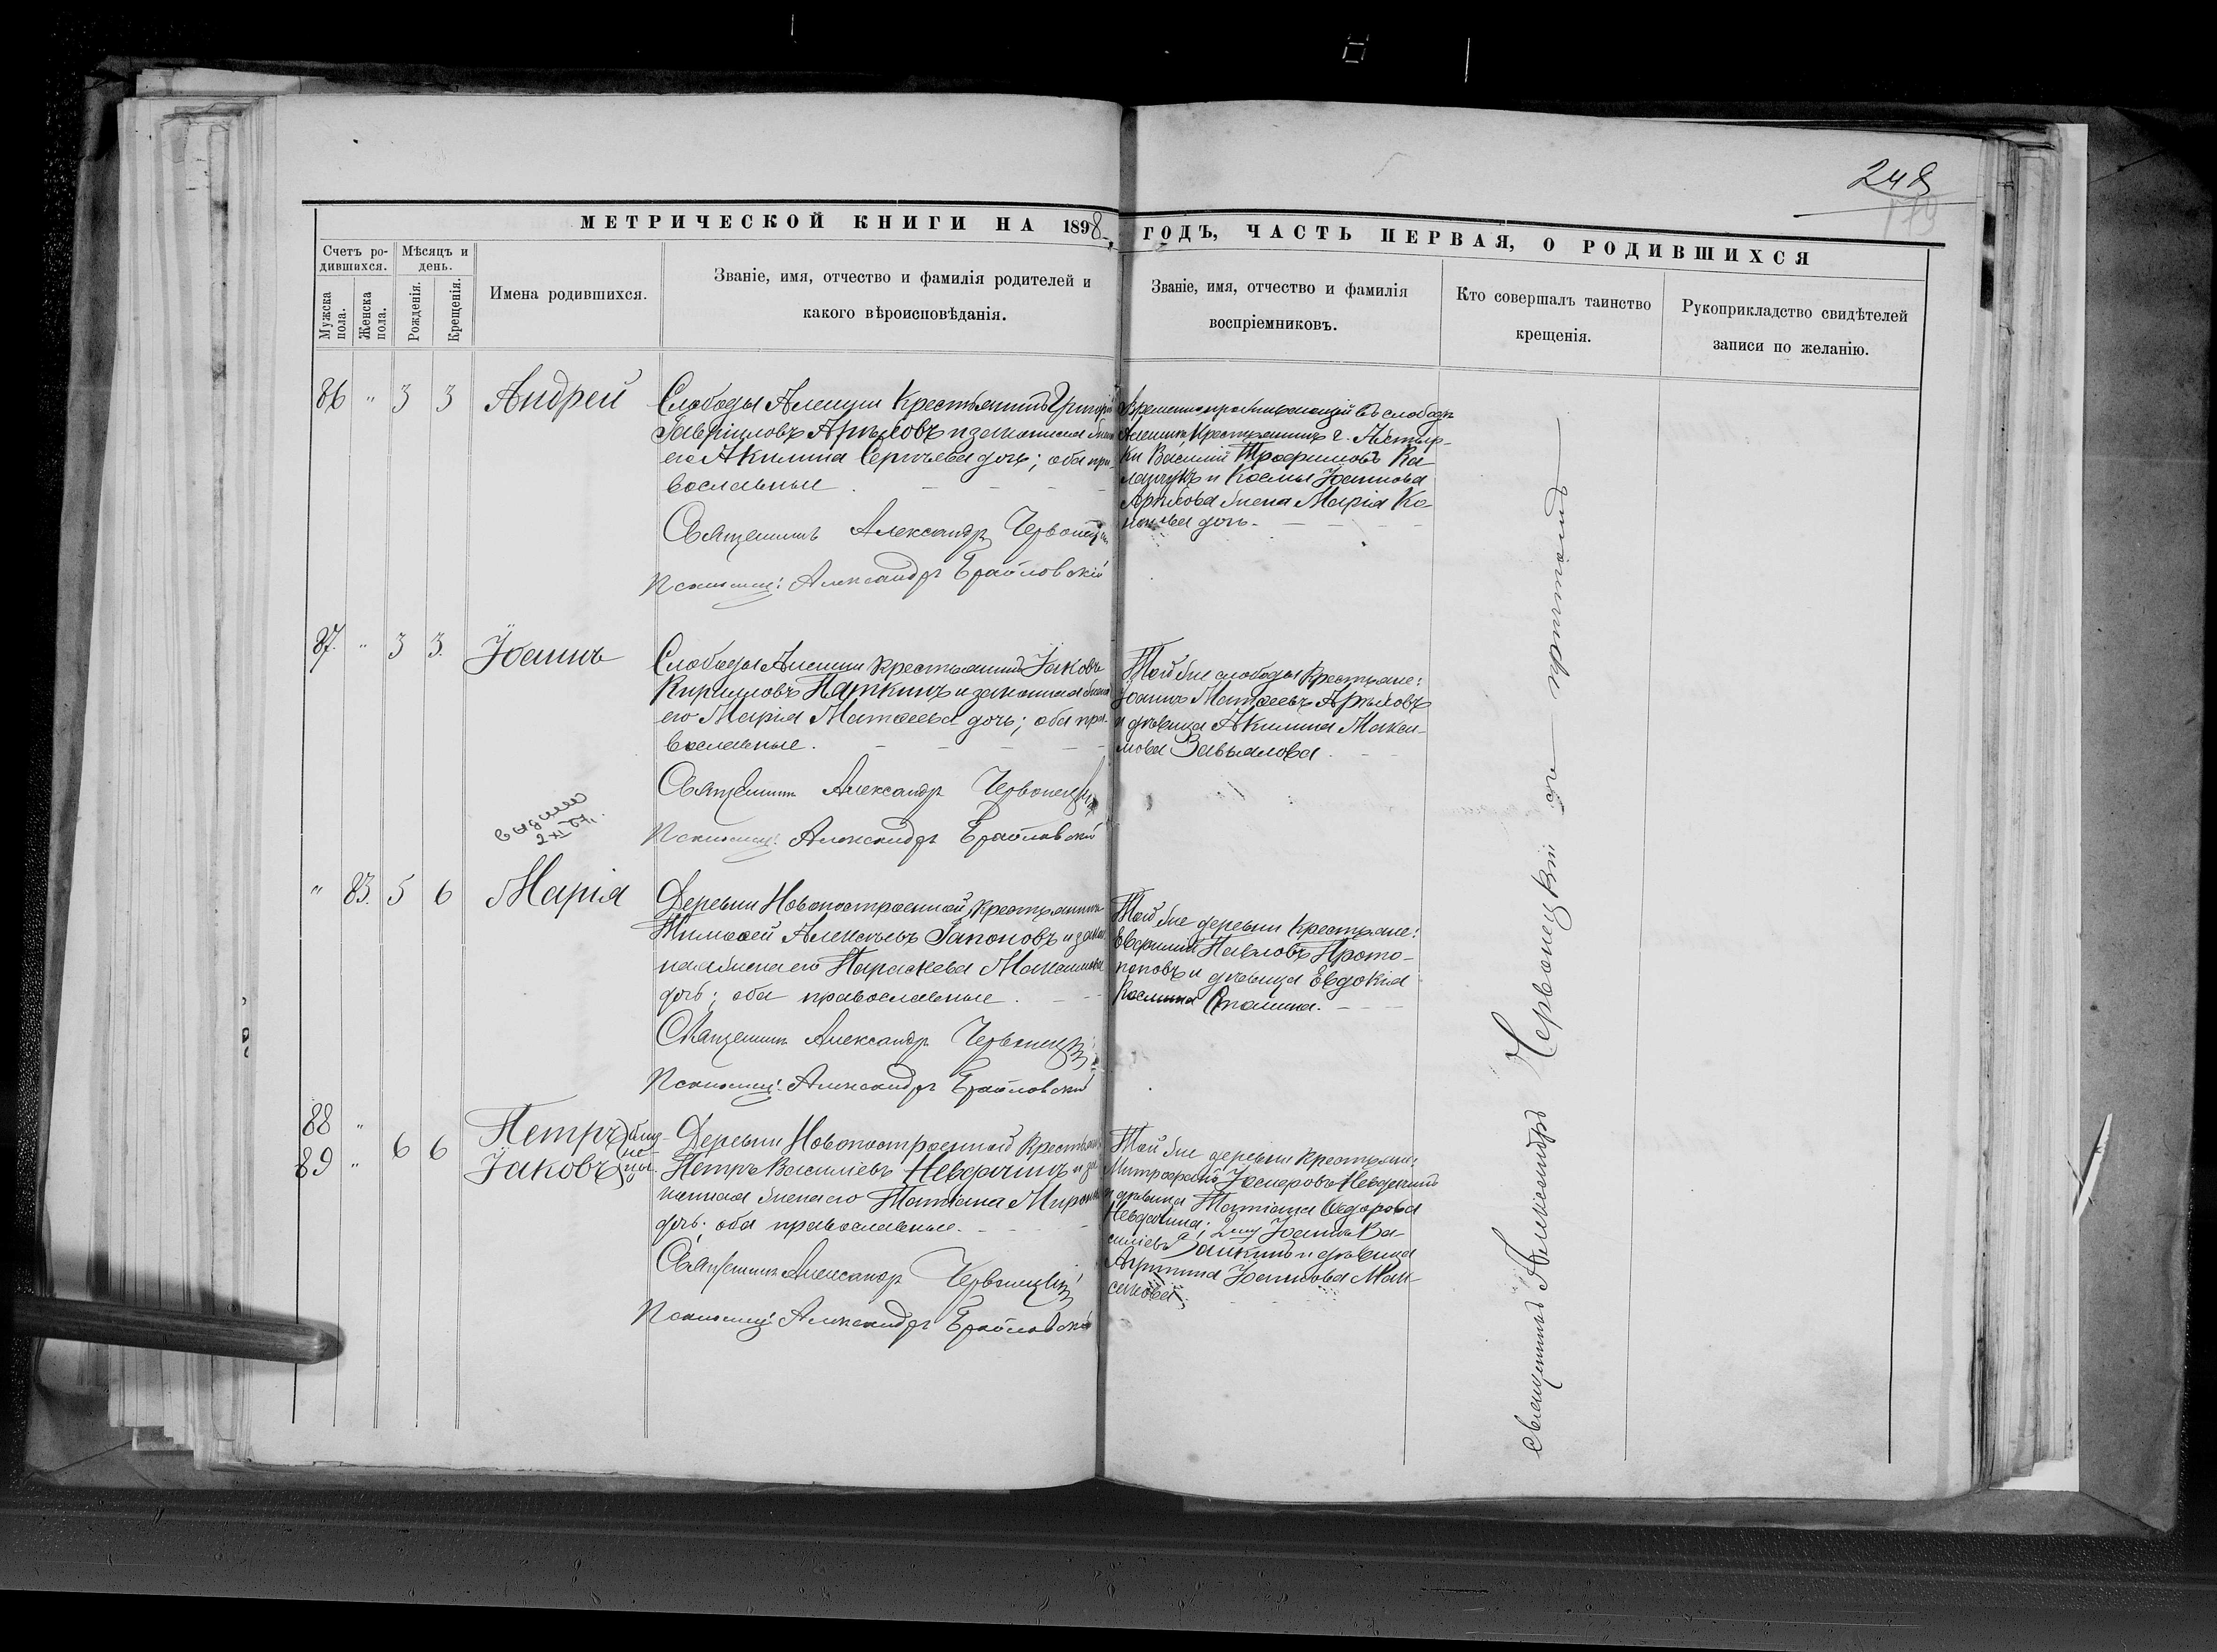 248
179
МЕТРИЧЕСКОЙ КНИГИ НА 1898 ГОДЪ, ЧАСТЬ ПЕРВАЯ, О РОДИВШИХСЯ
Счетъ ро-
дившихся.
Мѣсяцъ и
день.
Мужска
пола.
Женска
пола.
Рожденія.
Крещенія.
Имена родившихся.
Званіе, имя, отчество и фамилія родителей и
какого вѣроисповѣданія.
Званіе, имя, отчество и фамилія
воспріемниковъ.
Кто совершалъ таинство
крещенія.
Рукоприкладство свидѣтелей
записи по желанію.
86 " 3 3 Андрей
Слободы Алешни крестьянинъ Григорій
Гавріиловъ Арпыховъ и законная жена
его Акилина Сергѣева дочь; оба пра-
вославные
Священникъ Александръ Червонецкій
Псаломщ: Александръ Брайловскій
Временнопроживающій въ слободѣ
Алешнѣ крестьянинъ г. Ахтыр-
ки Василій Трофимовъ Ка-
и Космы Іоаннова
жена Марія Ко-
нонова дочь.
87. " 3 3. Іоаннъ
Слободы Алешни крестьянинъ Іаковъ
Кирилловъ Пяткинъ и законная жена
его Марія Матѳеева дочь; оба пра-
вославные.
Священникъ Александръ Червонецкій
Псаломщ: Александръ Брайловскій
Той же слободы крестьяне:
Іоаннъ Матѳеевъ Арпыховъ
и дѣвица Акилина Макси-
мова Завьялова.
2 XI
" 83. 5 6 Марія
Деревни Новопостроенной крестьянинъ
Тимоѳей Алексѣевъ Гапоновъ и закон-
ная жена его Параскева Максимова
дочь; оба православные.
Священникъ Александръ Червонецкій
Псаломщ: Александръ Брайловскій
Той же деревни крестьяне:
Евфимій Павловъ Прото-
поповъ и дѣвица Евдокія
Космина
88 "
89 "
6 6
Петръ
Іаковъ
близ-
не-
цы
Деревни Новопостроенной крестьянинъ
Петръ Василіевъ Невдачинъ и за-
конная жена его Татіана Миронова
дочь; оба православные.
Священникъ Александръ Червонецкій
Псаломщ: Александръ Брайловскій
Той же деревни крестьяне:
Митрофанъ Іосифовъ Невдачинъ
и дѣвица Татіана Ѳедорова
Невдачина; 2му Іоаннъ Ва-
силіевъ и дѣвица
Іоаннова
Священникъ Александръ Червонецкій